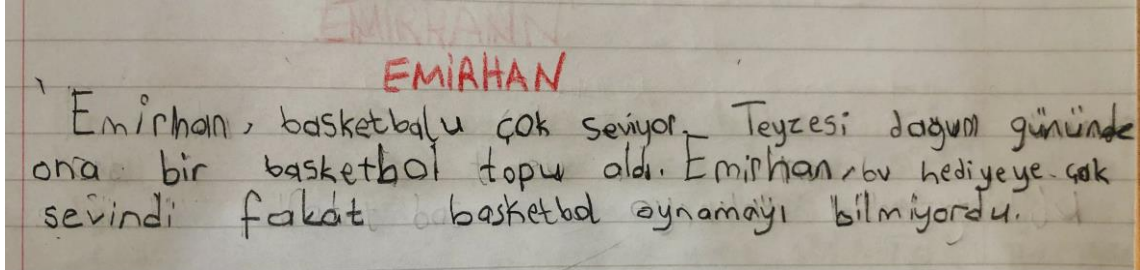 EMİRHAN
Emirhan, basketbalu çok seviyor. Teyzesi doğum gününde
ona bir basketbol topu aldı. Emirhan, bu hediyeye çok
sevindi fakat basketbol oynamayı bilmiyordu.